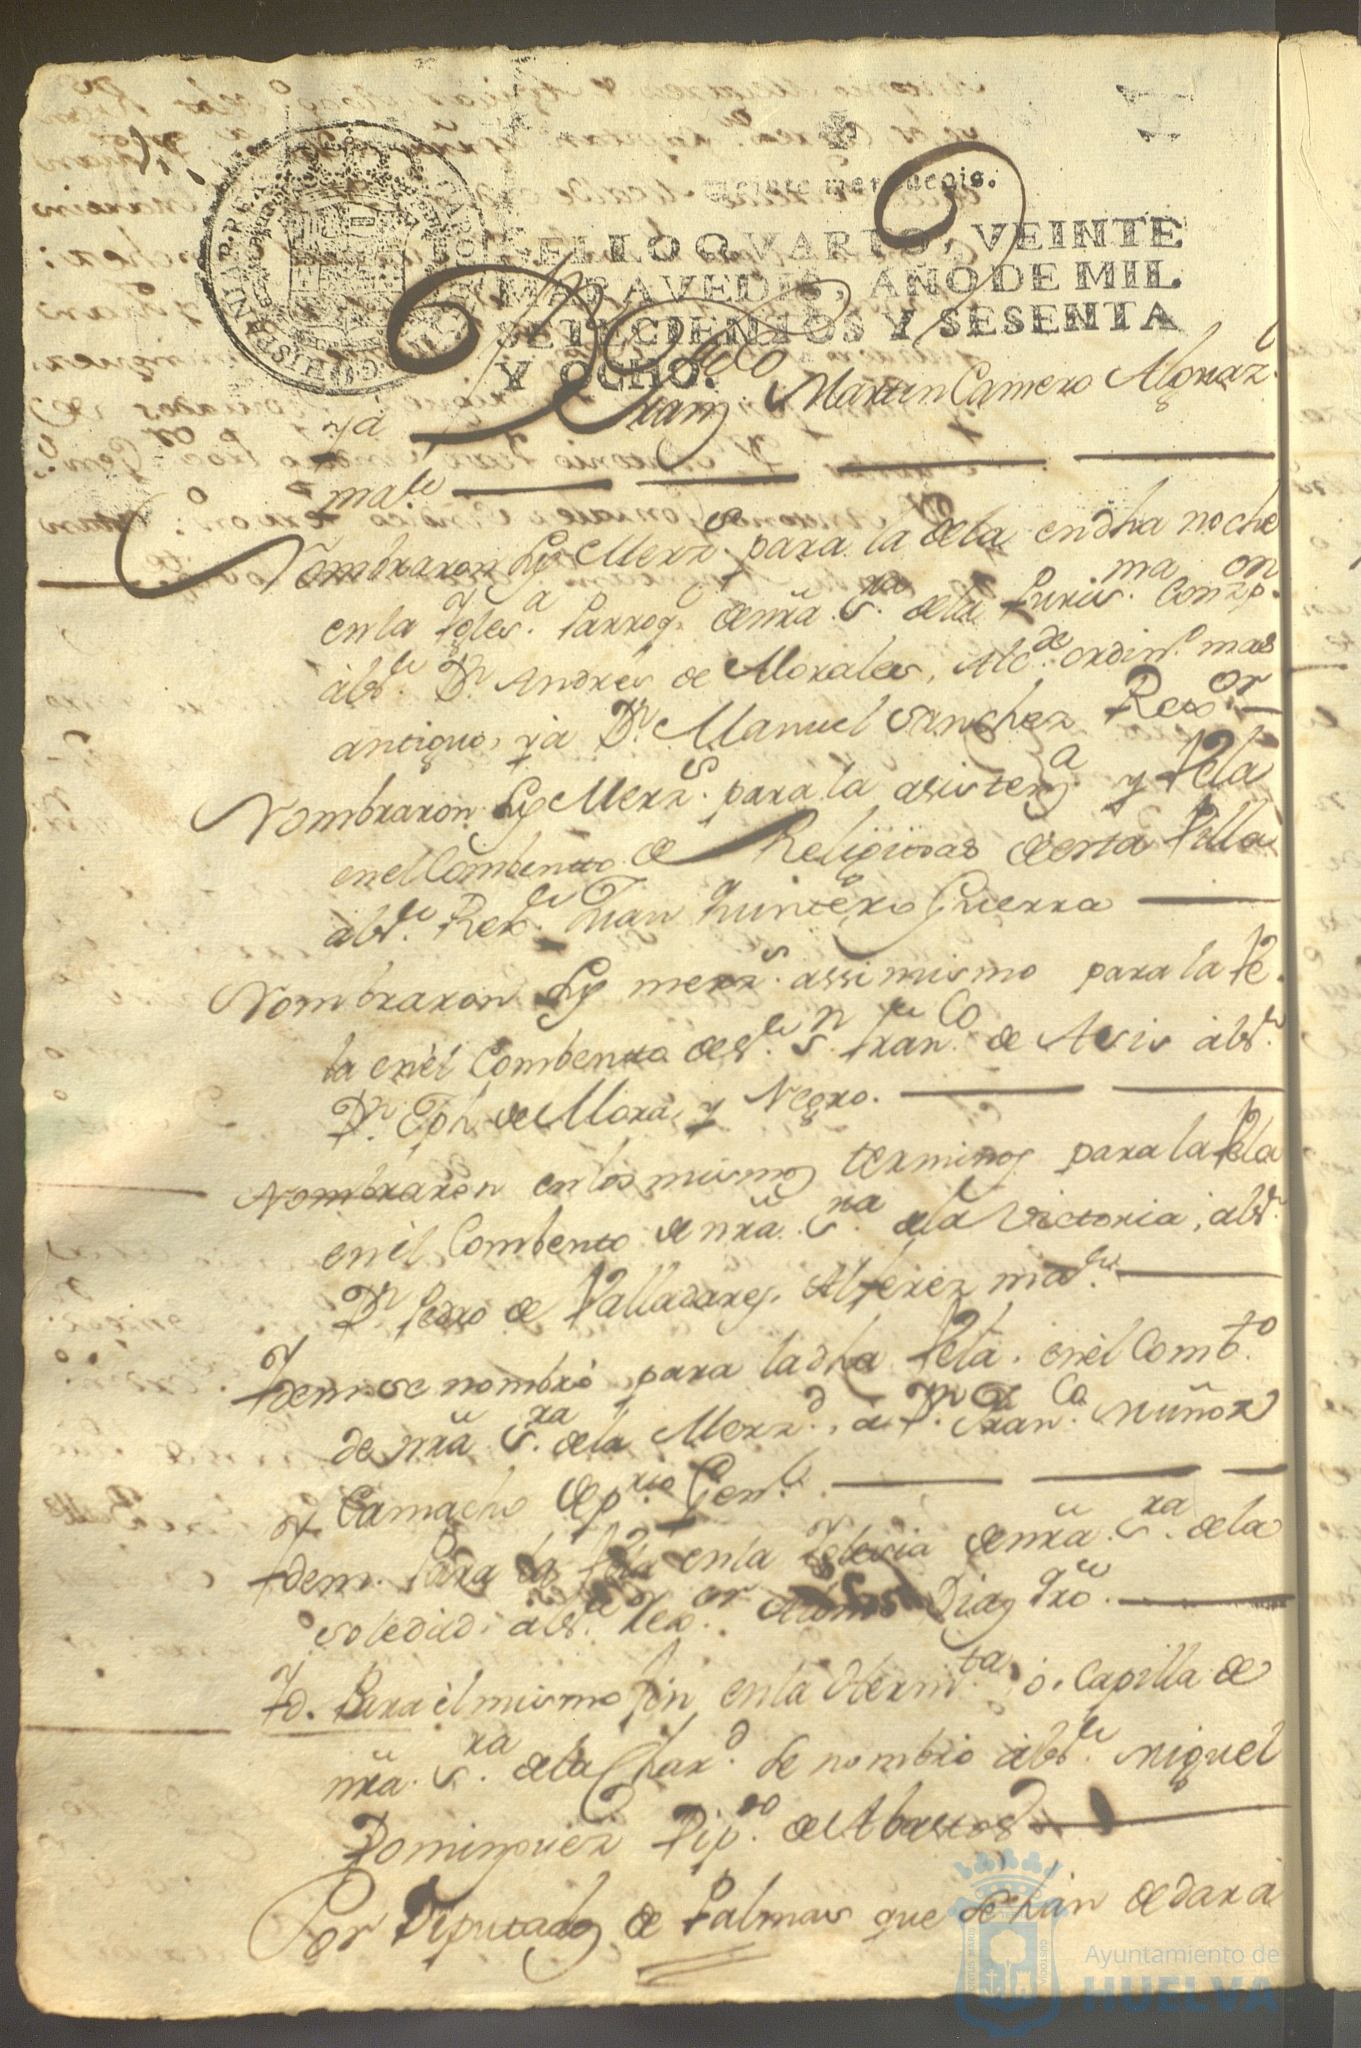 Veinte maravedis.
SELLO QVARTO, VEINTE
MARAVEDIS, AÑO DE MIL
SETECIENTOS Y SESENTA
Y OCHO.
HISPANIAR. REX
ya Fran.co Martin Camero Alguaz.l
ma.or
Nombraron Ss Merz.s para la dela en dha noche
en la Igles.a Parroq.l de nrã S.ra de la Puris.ma Conzp.on
àl S.or D.n Andres de Morales, Alc.de ordin.o mas
antiguo, ya D.n Manuel Sanchez Rex.or
Nombraron Ss Merz.s para la asisten.a y Vela
en el Combento de Religiosas de esta Villa
àl S.or Rex.or Juan Quintero Guerra
Nombraron Ss merz.s assimismo para la Ve-
la en èl Combento de S.or S.n Fran.co de Asis àl S.or
D.n Jph. de Mora, y Negro.
Nombraron en los mismos terminos para la Vela
en èl Combento de nrã S.ra de la Victoria, al S.or
D.n Pedro de Valladares, Alferez ma.or
Idem se nombrò para la dha Vela en èl Comb.to
de nrã S.ra de la Merz.d, a D.n Fran.co Muñoz
Camacho Dep.rio Gen.l
Idem Para la Vela en la Iglesia de nrã S.ra de la
Soledad al S.or Rex.or Diaz
Yd. Para èl mismo fin en la Hermi.ta, ò Capilla de
nrã S.ra de la Char.d se nombrò àl S.or Miguel
Dominguez Dip.do de Abastos
Por Diputados de Palmas que se hán de dar a
Ayuntamiento de
HUELVA